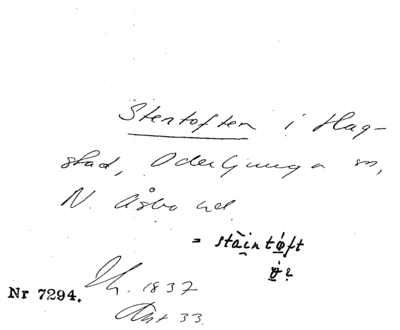 Stentoften i Hag-
stad, Oderljunga sn,
N. Åsbo hd.
= stàintóft
Nr 7294.
1837
33.